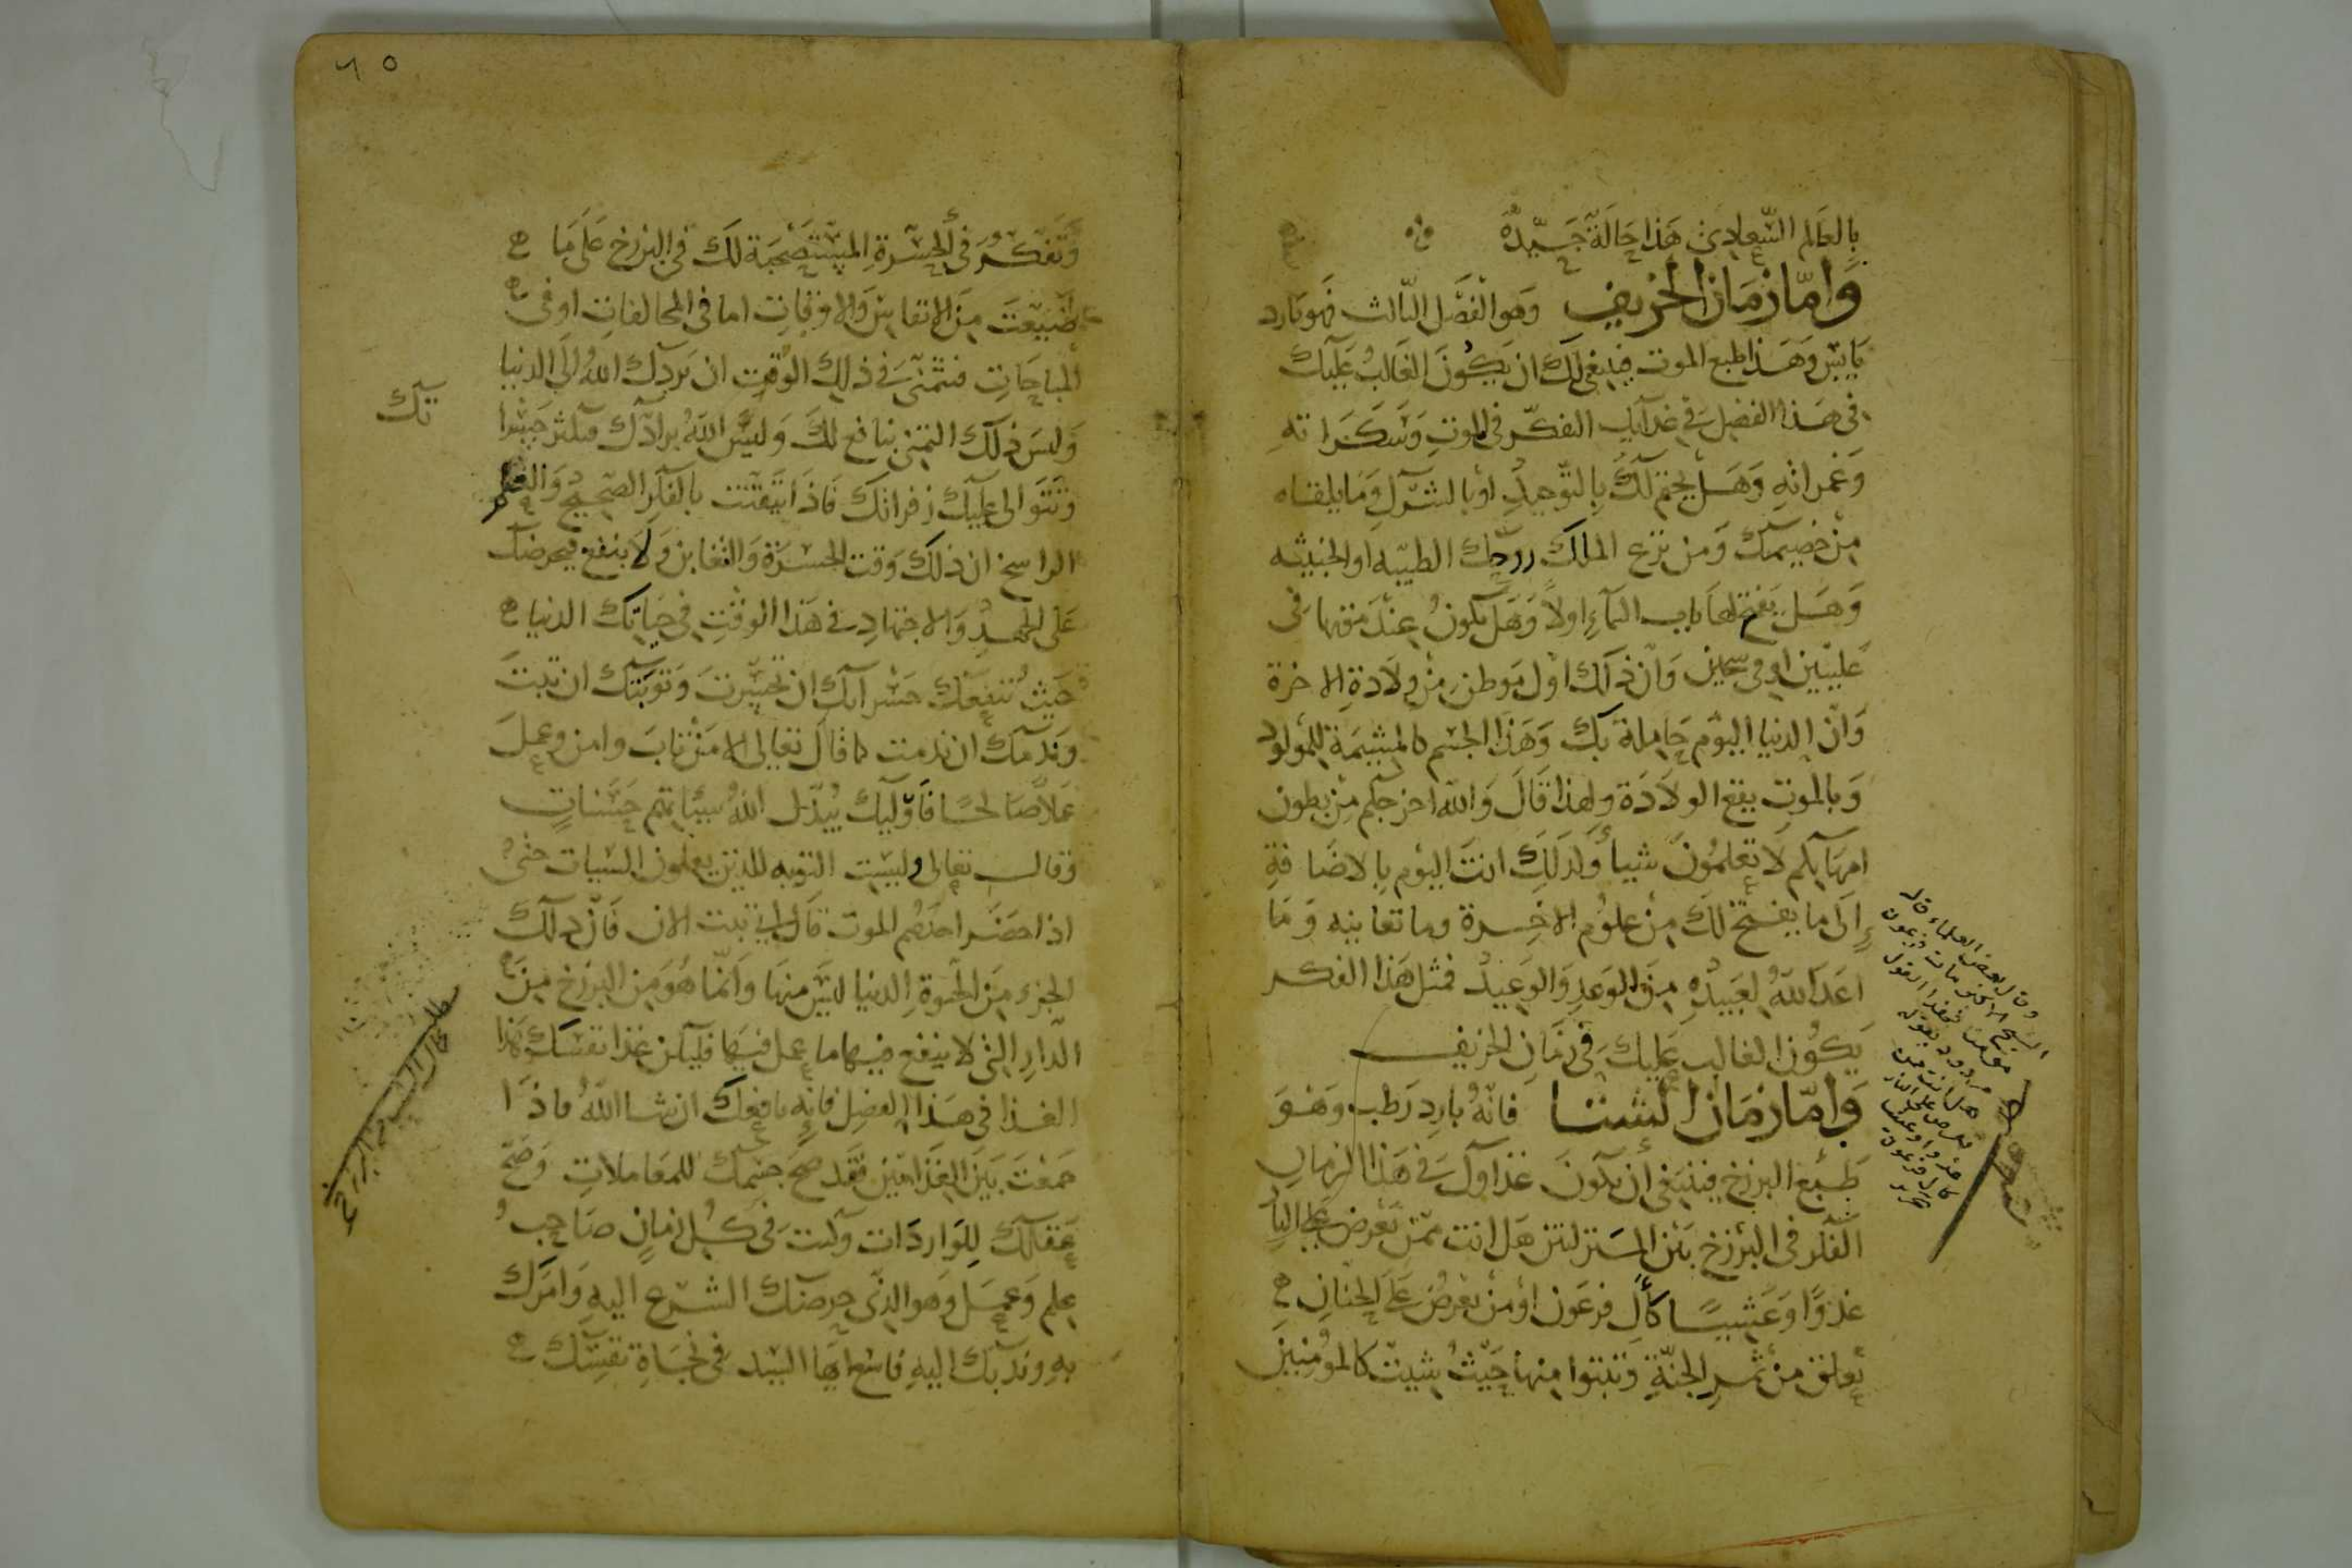 بِالعَالم السّعادى هَذا حَالَة جَيّدة
وَامّا زمَان الخريف وَهو الفصَل الثالث فهو بَارد
يَابس وَهَذا طبع الموت فينبغى لكَ ان يكُونَ الغَالبُ عَليك
فى هَذا الفصل فى غدآيك التفكّر فى الموت وسَكرَاته
وَغمراته وَهَل يختم لكَ بالتّوحيد او بالشرك وَمَا يلقاه
مِنْ خصيمك وَمن نزع الملك روحك الطيبه او الخبيثه
وَهَل يفتح لها باب السمآء اولاً وَهَل تكونُ عِندَ مَوتها فى
عَليّين او فى سجين وَانّ ذلك اول مَوطن مِنْ ولادةِ الاخرة
وَانّ الدنيا اليوم حَاملة بك وَهَذا الجسم كالمشيمَة للمولود
وَبالموت يقع الولادَة ولهذا قَالَ وَالله اخرجكم مِنْ بطون
امهَاتكم لَا تعلمُونَ شيأ وَكذلكَ انتَ اليوم بالاضَافةِ
اِلَى ما يفتح لكَ مِنْ علوم الاخِرة وما تعاينه وَمَا
اعدَ اللهُ لعَبيدُه مِنَ الوَعدِ وَالوَعيد فمثل هَذا الفكر
يَكُون الغالب عَليكَ فى زمَانِ الخريف
وَامّا زمَان الشتا فانّهُ بارد رَطب وَهُوَ
طَبع البرزخ فينبغى أن يكونَ غذاوكَ فى هَذا الزمان
الفكر فى البرزخ بَيْن المنزلتين هَل انت ممّن يَعْرض عَلى النار
غدوًّا وَعَشيًّا كأل فرعَون اوْ مَنْ يعْرضُ عَلَى الجنان
يعلق من ثمر الجنّةِ وَتتبَوا منها حَيْثُ شيت كالمومنين
وقال بعض العلماء قال
الشيخ الاكبر مات فرعون
مومنا فهذا القول
مردود بقوله
هل انت ممن
يعرض على النار
غدوا وعشيا
كال فرعون
٦٥
وَتفكرُ فى الحسْرةِ المسْتصْحبَة لكَ فى البرزخ عَلَى مَا
ضَيّعتَ مِنَ الانفاسِ وَالاوقاتِ اما فى المخالفاتِ او فى
المباحَاتِ فتمّنى فى ذلك الوقت ان يَردك اللهُ الى الدنيا
وَليسَ ذلك التمنى بنافع لكَ وَليسَ اللهُ برادّك فتكثر حَسْراتك
وَتتوَالى عَليكَ زفراتك فَاذَا تيَقّنْتَ بالفكر الصّحيح وَالفكر
الراسخ ان ذلكَ وَقت الحسْرَة وَالتغابن وَلَا ينفع فيحرضك
عَلى الجهدِ وَالاجتهادِ فى هَذا الوقتِ فى حَياتك الدنيا
حَيْثُ تنفعَك حَسْراتك ان تحسّرتَ وَتوبَتك ان تبتَ
وَندمَك ان ندمت كما قالَ تعالى الا مَنْ تابَ وامن وعَملَ
عَملاً صَالحًا فَاوليك يُبدّل اللهُ سيّأتهم حَسَناتٍ
وقال تعالى وليست التوبه للذين يعملون السيات حتى
اذا حضَر احدَهُم الموت قال انى تبت الان فَانّ ذلك
الجزء مِنَ الحيوةِ الدنيا ليسَ منهَا وَانّما هُوَ مِنَ البَرزخ مِنَ
الدّارِ التى لا ينفع فيها ما عمل فيها فليكن غذا نفسك هَذا
الغذا فى هَذا الفصْل فانّه نافعك ان شا اللهُ فاذَا
جَمعْتَ بَيْنَ الغذامَين فَقد صَح جسمك للمعَاملاتِ وَصَحّ
عَقلك لِلوَاردَات وَكنتَ فى كُل زمَانٍ صَاحِب
علم وَعَمَل وَهو الذى حرضَك الشرع اليهِ وَامَركَ
بهِ وندبَك اليهِ فاسع ايّها السّيد فى نجَاةِ نفسك